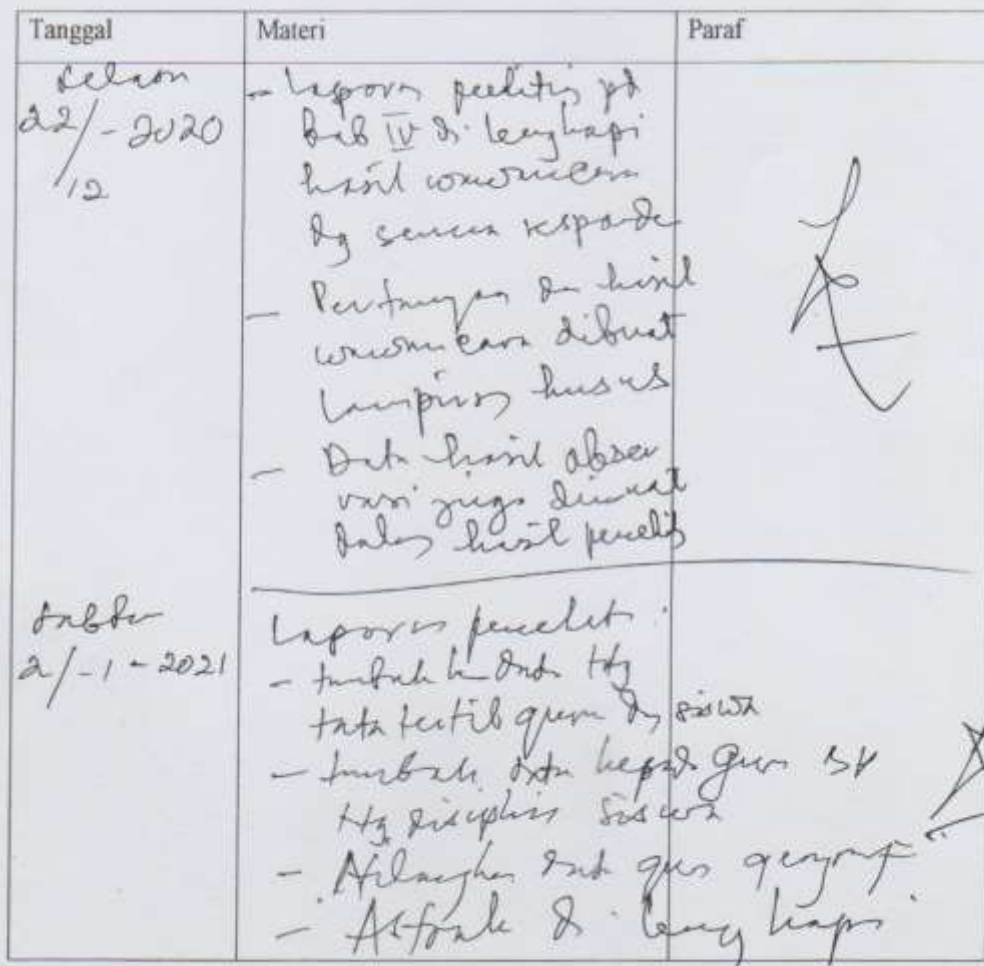 Tanggal Materi Paraf
Selasa
22/12 - 2020
- Laporan peelitin pd
bab IV di lengkapi
hasil wawancara
dg semua responde
- Pertanyaan dan hasil
wawancara dibuat
lampiran husus
- Data hasil obser
vasi juga dimuat
dalam hasil penelit
Sabtu
2/-1-2021
Laporan penelit :
- tambah data ttg
tata tertib guru dan siswa
- tambah data kepada guru BK
ttg disiplin siswa
- data guru
- Abstrak di lengkapi